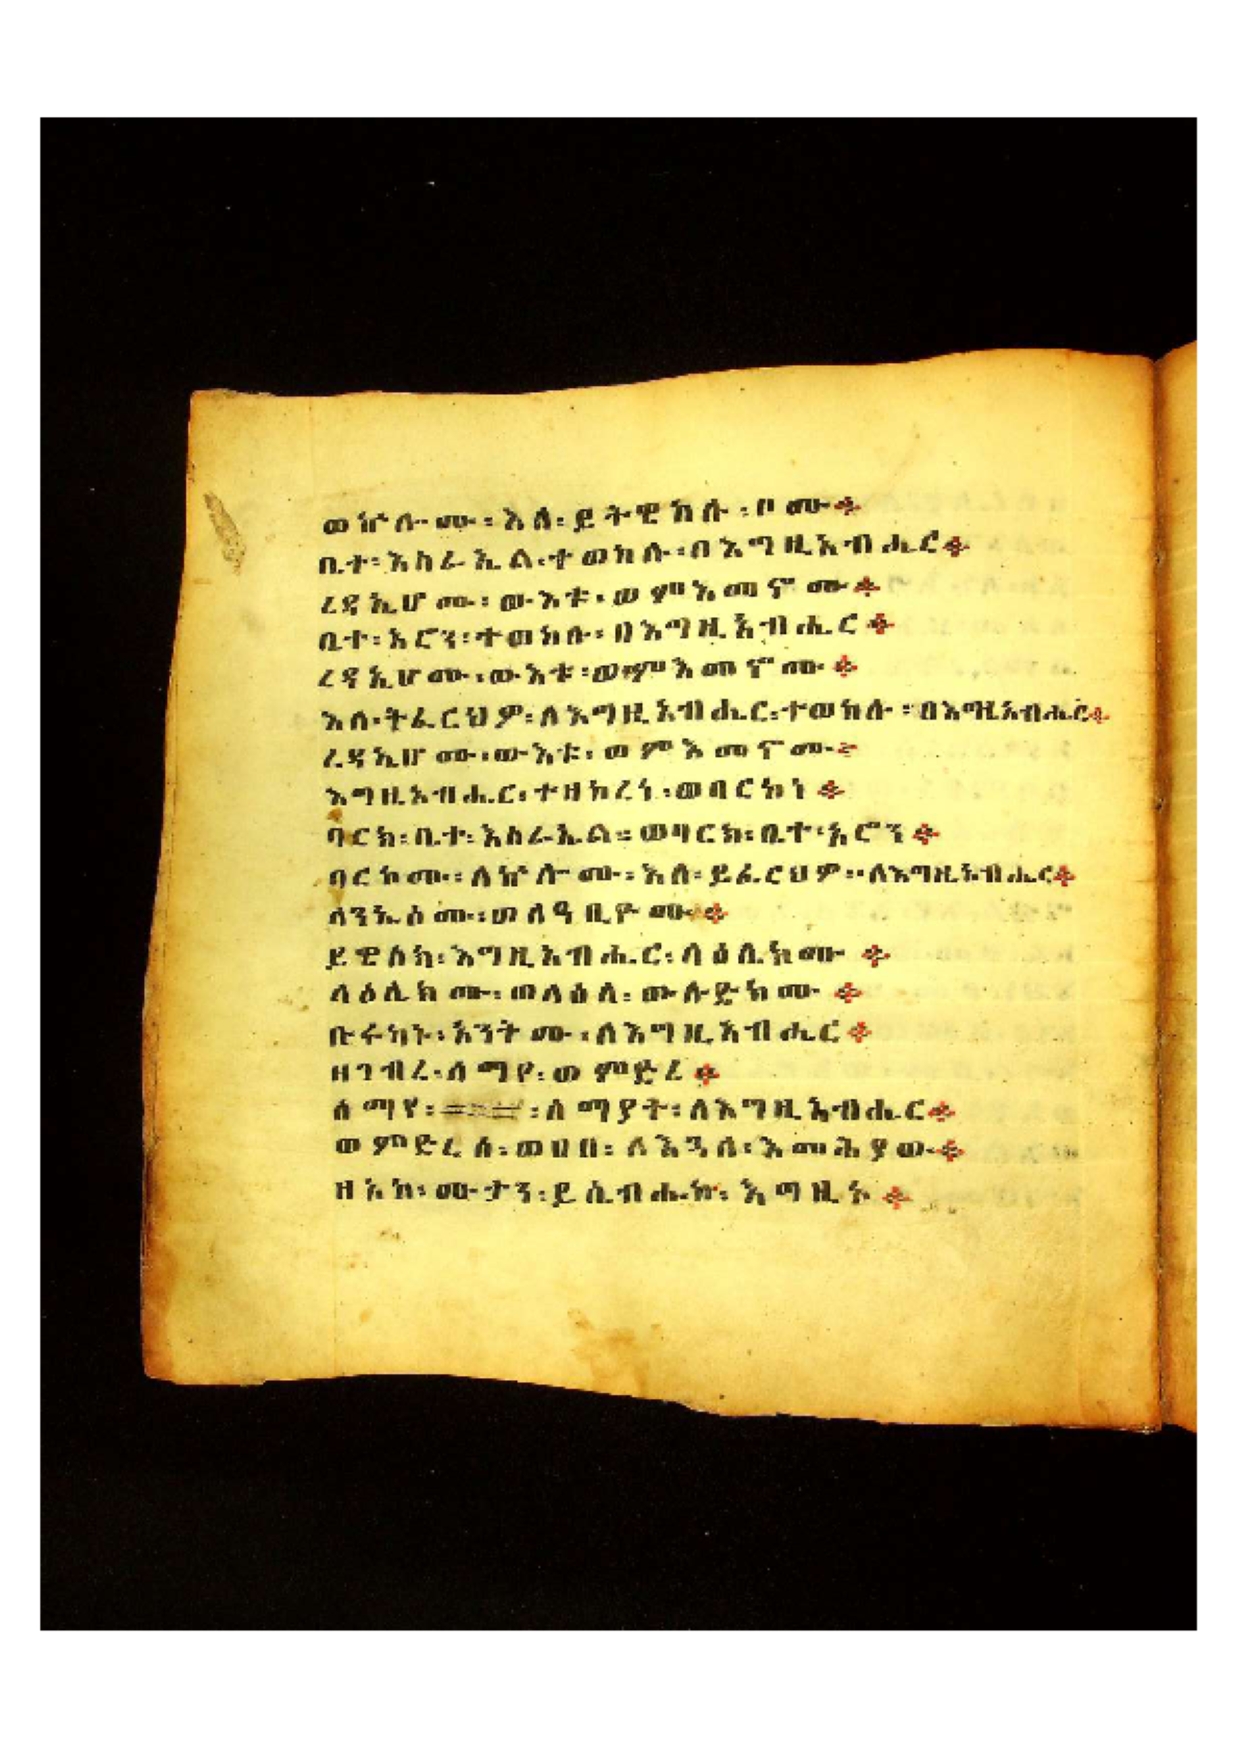 ወኵሉሙ፡እለ፡ይትዌከሉ፡ቦሙ፨
ቤተ፡እስራኤል፡ተወከሉ፡በእግዚአብሔር፨
ረዳኢሆሙ፡ውእቱ፡ወምእመኖሙ፨
ቤተ፡አሮን፡ተወከሉ፡በእግዚአብሔር፨
ረዳኢሆሙ፡ውእቱ፡ወምእመኖሙ፨
እለ፡ትፈርህዎ፡ለእግዚአብሔር፡ተወከሉ፡በእግዚአብሔር፨
ረዳኢሆሙ፡ውእቱ፡ወምእመኖሙ፨
እግዚአብሔር፡ተዘከረነ፡ወባርከነ፨
ባርክ፡ቤተ፡እስራኤል፡ወባርክ፡ቤተ፡አሮን፨
ባርኮሙ፡ለኵሎሙ፡እለ፡ይፈርህዎ፡ለእግዚአብሔር፨
ለንኡሶሙ፡ወለዓቢዮሙ፨
ይዌስክ፡እግዚአብሔር፡ላዕሌክሙ፨
ላዕሌክሙ፡ወላዕለ፡ውሉድክሙ፨
ቡሩካኑ፡አንትሙ፡ለእግዚአብሔር፨
ዘገብረ፡ሰማየ፡ወምድረ፨
ሰማየ፡ሰማያት፡ለእግዚአብሔር፨
ወምድረሰ፡ወሀበ፡ለእጓለ፡እመሕያው፨
ዘአኮ፡ሙታን፡ይሴብሑከ፡እግዚኦ፨